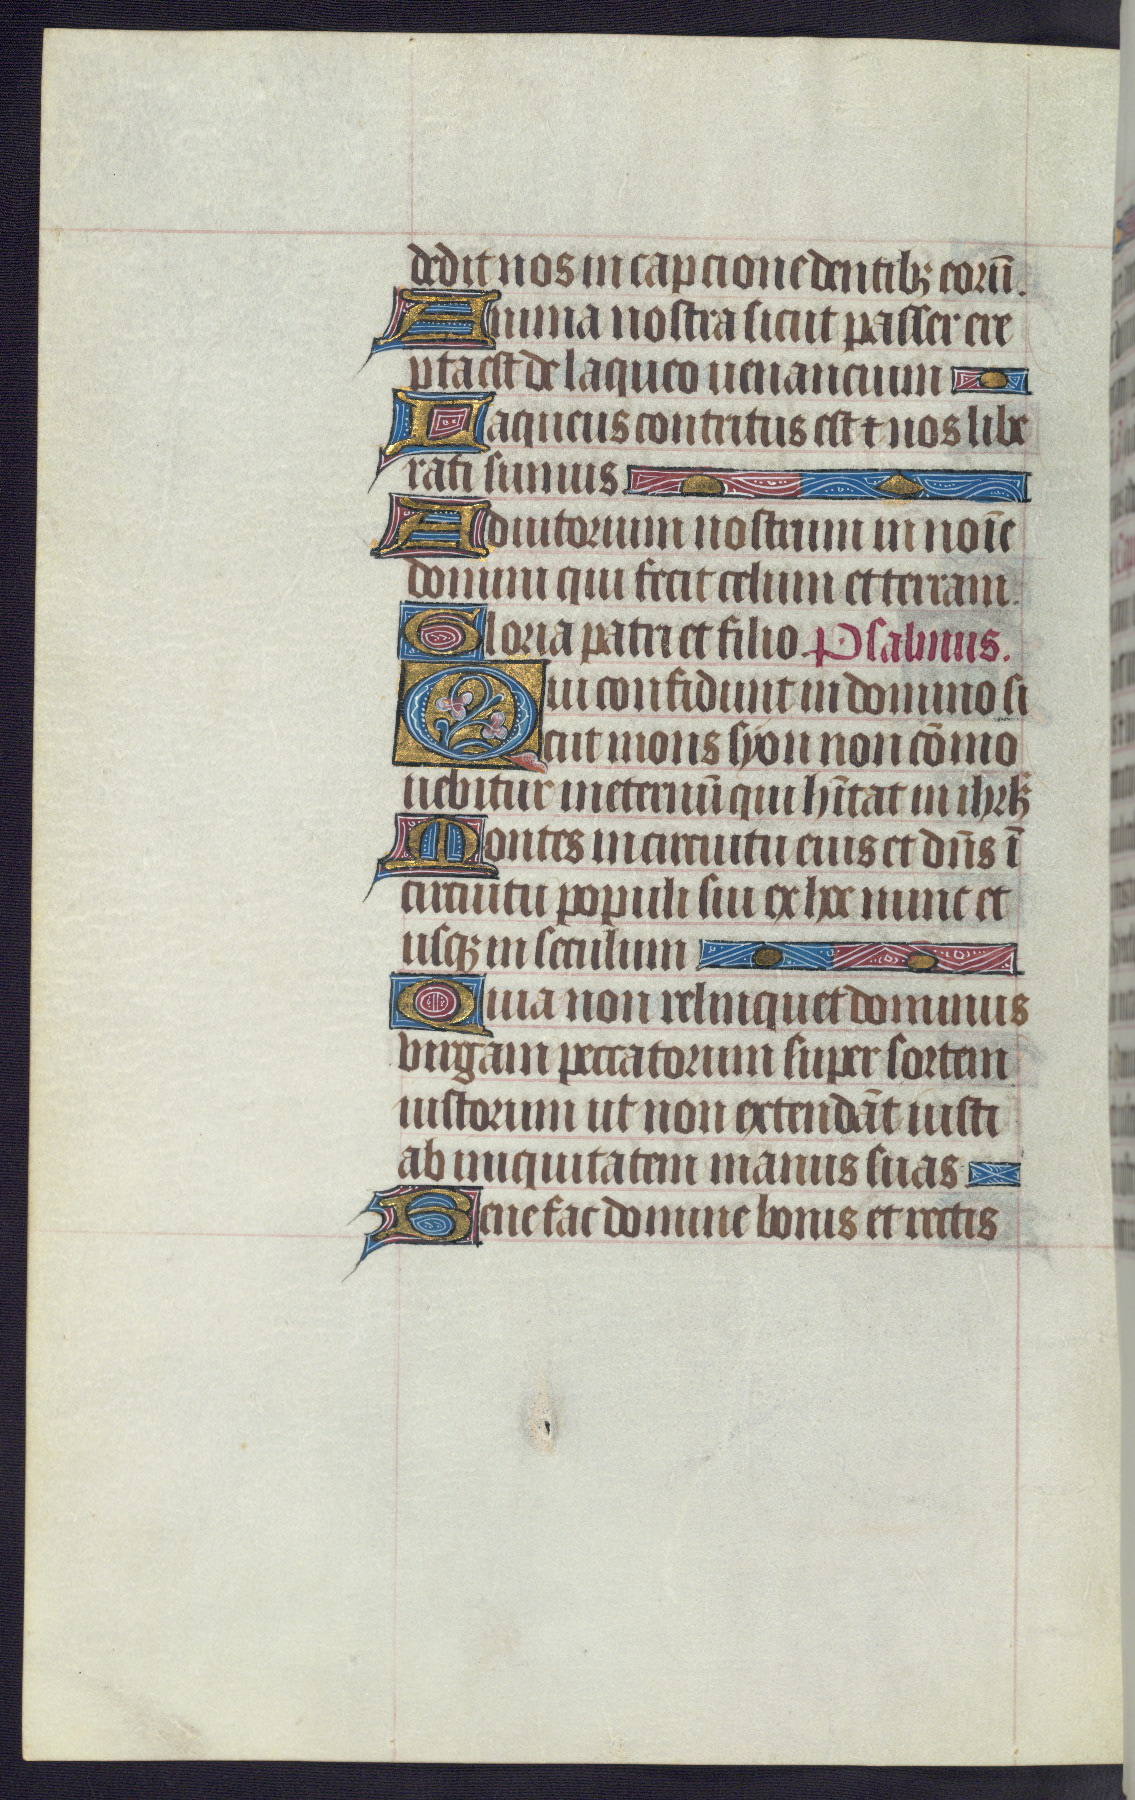 dedit nos in capcione dentibꝫ eorū.
Anima nostra sicut passer ere
pta est de laqueo uenancium
Laqueus contritus est ⁊ nos libe
rati sumus
Adiutorium nostrum in noīe
domini qui fecit celum et terram.
Gloria patri et filio. Psalmus.
Qui confidunt in domino si
cut mons syon non cōmo
uebitur ineternū qui hītat in ihrłꝫ
Montes in circuitu eius et dn̄s ī
circuitu populi sui ex hoc nunc et
usqꝫ in seculum
Quia non relinquet dominus
virgam peccatorum super sortem
iustorum ut non extendāt iusti
ab iniquitatem manus suas
Benefac domine bonis et rectis